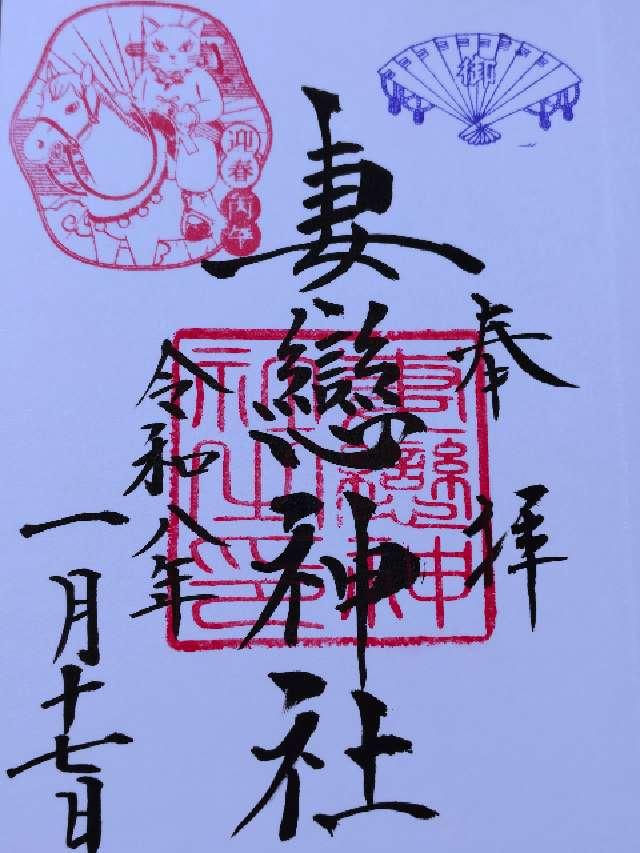 御
奉拝
妻戀神社
妻戀神社之印
令和八年
一月十七日
迎春
丙午